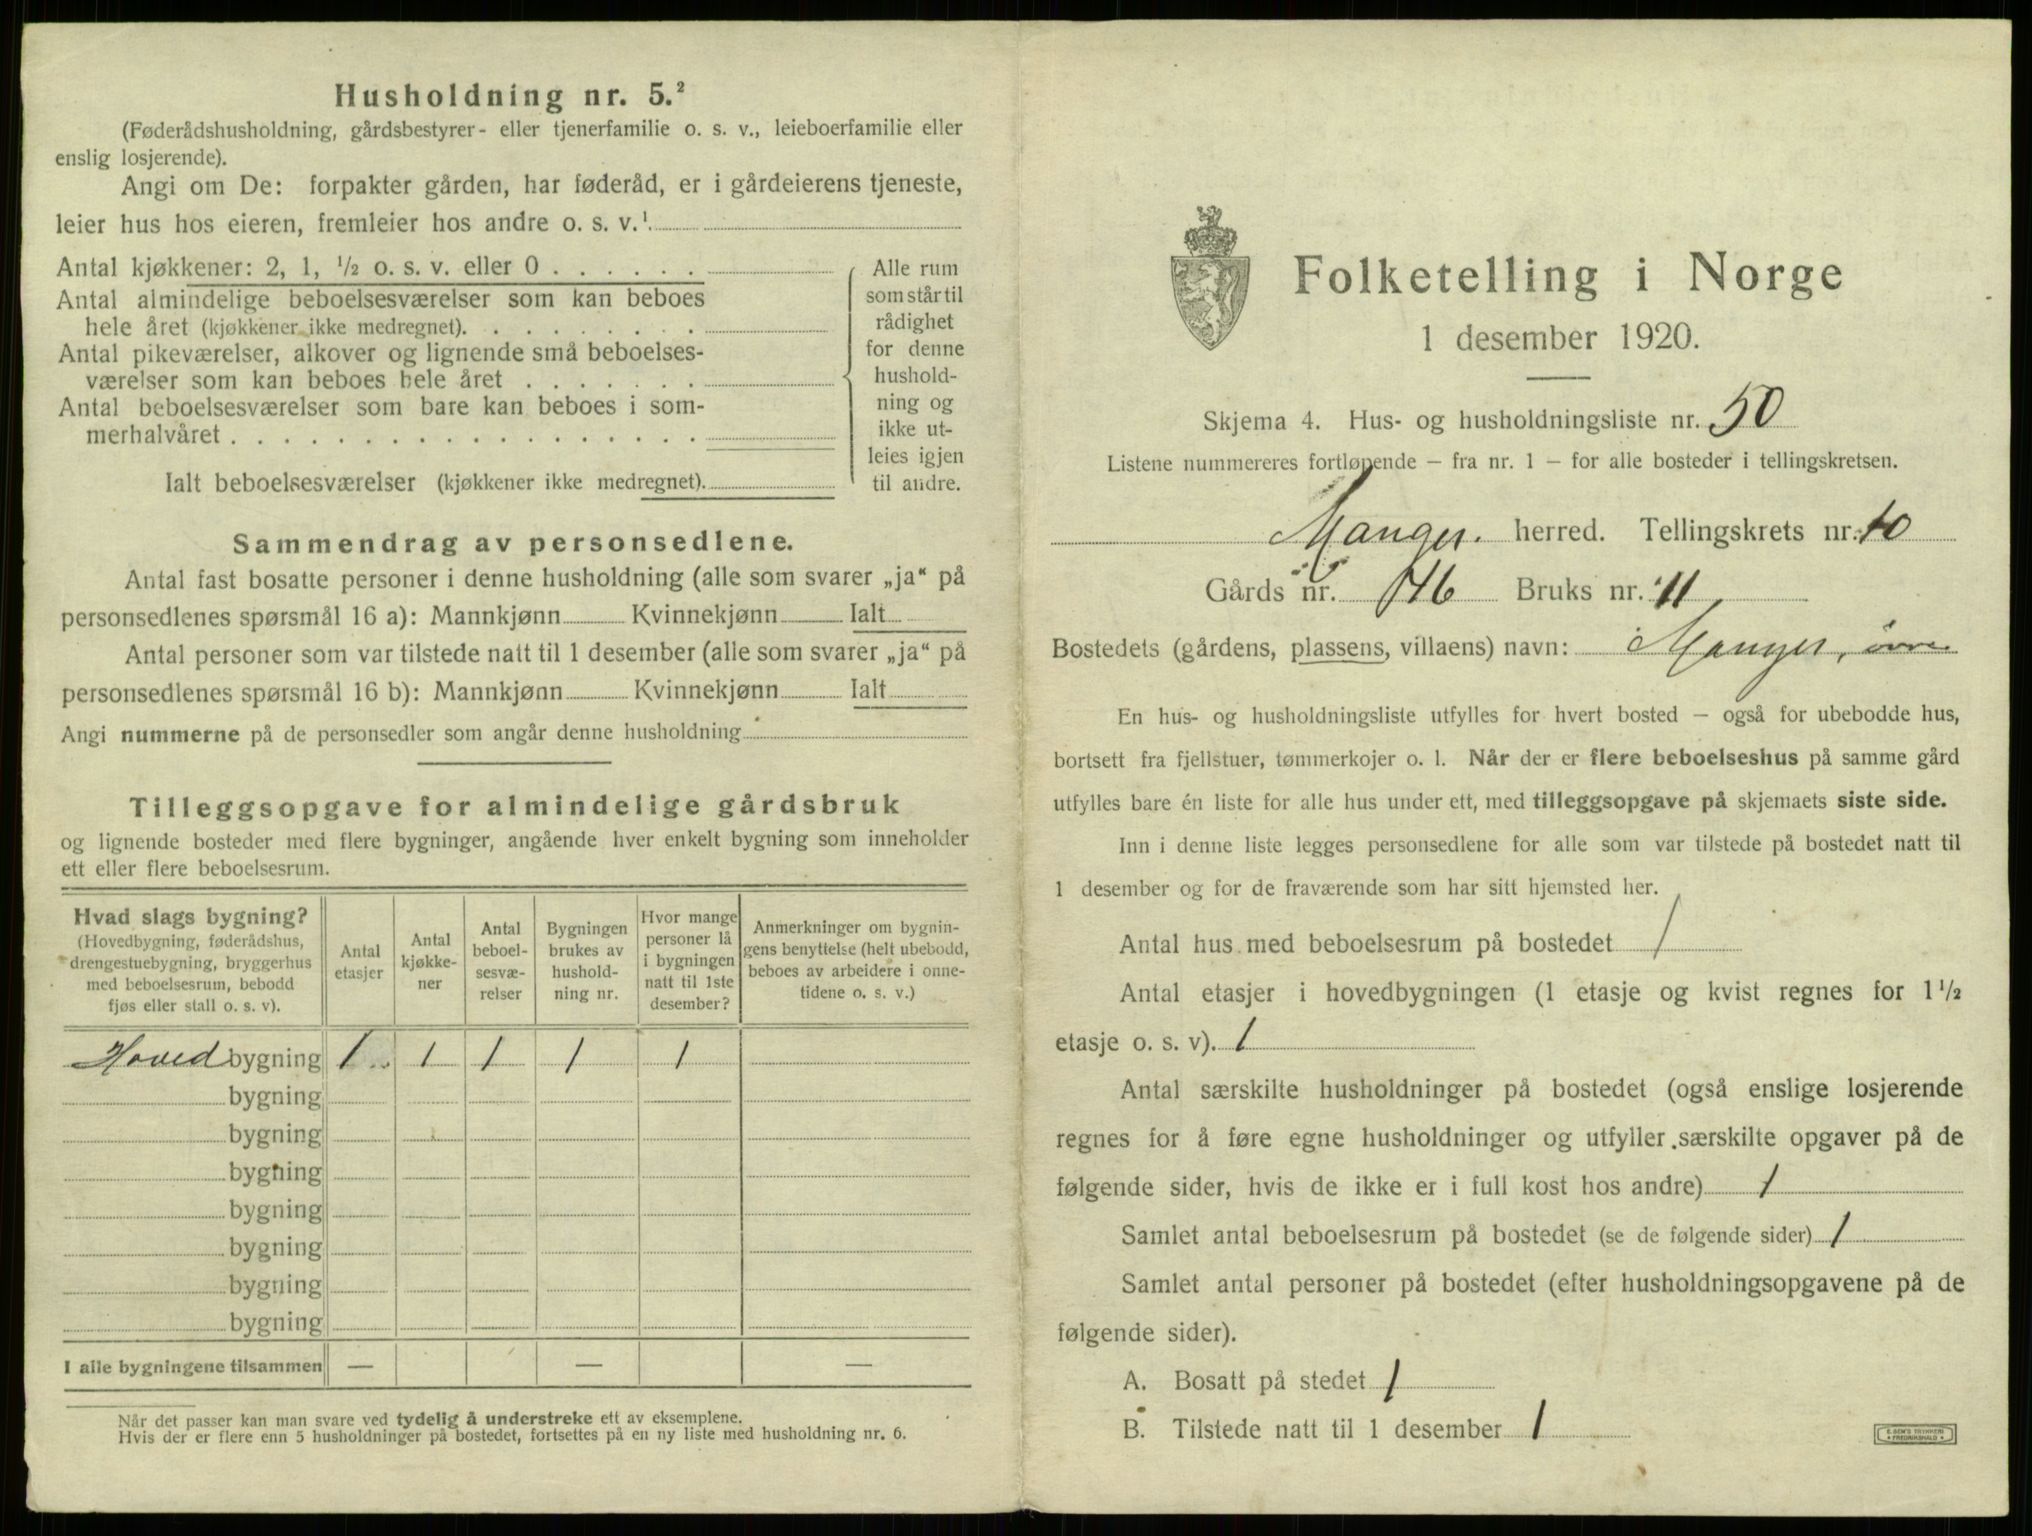 Husholdning nr. 5.²
(Føderådshusholdning, gårdsbestyrer- eller tjenerfamilie o. s. v., leieboerfamilie eller
enslig losjerende).
Angi om De: forpakter gården, har føderåd, er i gårdeierens tjeneste,
leier hus hos eieren, fremleier hos andre o. s. v.¹
Antal kjøkkener: 2, 1, ½ o. s. v. eller 0 . . . . . .
Antal almindelige beboelsesværelser som kan beboes
hele året (kjøkkener ikke medregnet). . . . . . . . .
Antal pikeværelser, alkover og lignende små beboelses-
værelser som kan beboes hele året . . . . . . .
Antal beboelsesværelser som bare kan beboes i som-
merhalvåret . . . . . . . . . . . . . . . . . .
Ialt beboelsesværelser (kjøkkener ikke medregnet).
Alle rum
som står til
rådighet
for denne
hushold-
ning og
ikke ut-
leies igjen
til andre.
Sammendrag av personsedlene.
Antal fast bosatte personer i denne husholdning (alle som svarer „ja“ på
personsedlenes spørsmål 16 a): Mannkjønn Kvinnekjønn Ialt
Antal personer som var tilstede natt til 1 desember (alle som svarer „ja“ på
personsedlenes spørsmål 16 b): Mannkjønn Kvinnekjønn Ialt
Angi nummerne på de personsedler som angår denne husholdning
Tilleggsopgave for almindelige gårdsbruk
og lignende bosteder med flere bygninger, angående hver enkelt bygning som inneholder
ett eller flere beboelsesrum.
Hvad slags bygning?
(Hovedbygning, føderådshus,
drengestuebygning, bryggerhus
med beboelsesrum, bebodd
fjøs eller stall o. s. v).
Antal
etasjer
Antal
kjøkke-
ner
Antal
beboel-
sesvæ-
relser
Bygningen
brukes av
hushold-
ning nr.
Hvor mange
personer lå
i bygningen
natt til 1ste
desember?
Anmerkninger om bygnin-
gens benyttelse (helt ubebodd,
beboes av arbeidere i onne-
tidene o. s. v.)
Hovedbygning 1 1 1 1 1
bygning
bygning
bygning
bygning
bygning
bygning
bygning
I alle bygningene tilsammen — — —
Når det passer kan man svare ved tydelig å understreke ett av eksemplene.
Hvis der er flere enn 5 husholdninger på bostedet, fortsettes på en ny liste med husholdning nr. 6.
Folketelling i Norge
1 desember 1920.
Skjema 4. Hus- og husholdningsliste nr. 50
Listene nummereres fortløpende – fra nr. 1 – for alle bosteder i tellingskretsen.
Manger. herred. Tellingskrets nr. 10
Gårds nr. 46 Bruks nr. 11
Bostedets (gårdens, plassens, villaens) navn: Manger, øvre
En hus- og husholdningsliste utfylles for hvert bosted – også for ubebodde hus,
bortsett fra fjellstuer, tømmerkojer o. l. Når der er flere beboelseshus på samme gård
utfylles bare én liste for alle hus under ett, med tilleggsopgave på skjemaets siste side.
Inn i denne liste legges personsedlene for alle som var tilstede på bostedet natt til
1 desember og for de fraværende som har sitt hjemsted her.
Antal hus med beboelsesrum på bostedet 1
Antal etasjer i hovedbygningen (1 etasje og kvist regnes for 1½
etasje o. s. v). 1
Antal særskilte husholdninger på bostedet (også enslige losjerende
regnes for å føre egne husholdninger og utfyller særskilte opgaver på de
følgende sider, hvis de ikke er i full kost hos andre) 1
Samlet antal beboelsesrum på bostedet (se de følgende sider) 1
Samlet antal personer på bostedet (efter husholdningsopgavene på de
følgende sider).
A. Bosatt på stedet 1
B. Tilstede natt til 1 desember 1
E. SEM'S TRYKKERI
FREDRIKSHALD